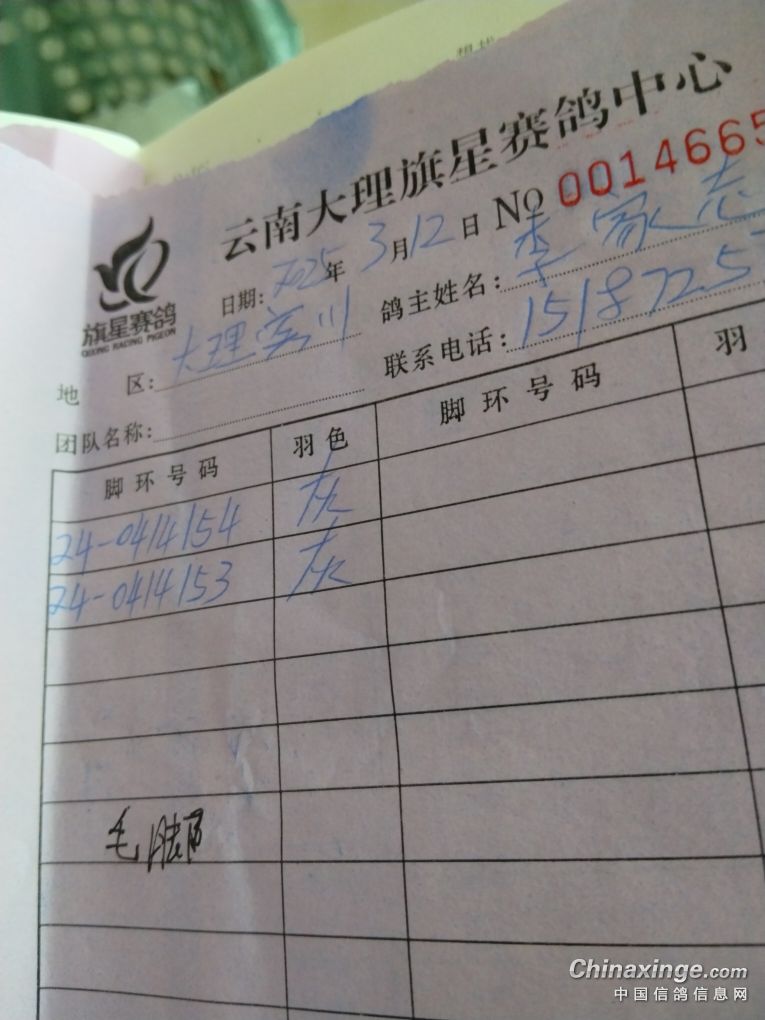 云南大理旗星赛鸽中心
旗星赛鸽
QIXING RACING PIGEON
日期: 2025年 3月12日 No 0014665
地 区: 大理宾川 鸽主姓名: 李家志
团队名称: 联系电话: 1518725
脚环号码 羽色 脚环号码 羽
24-0414154 灰
24-0414153 灰
毛
Chinaxinge.com
中国信鸽信息网